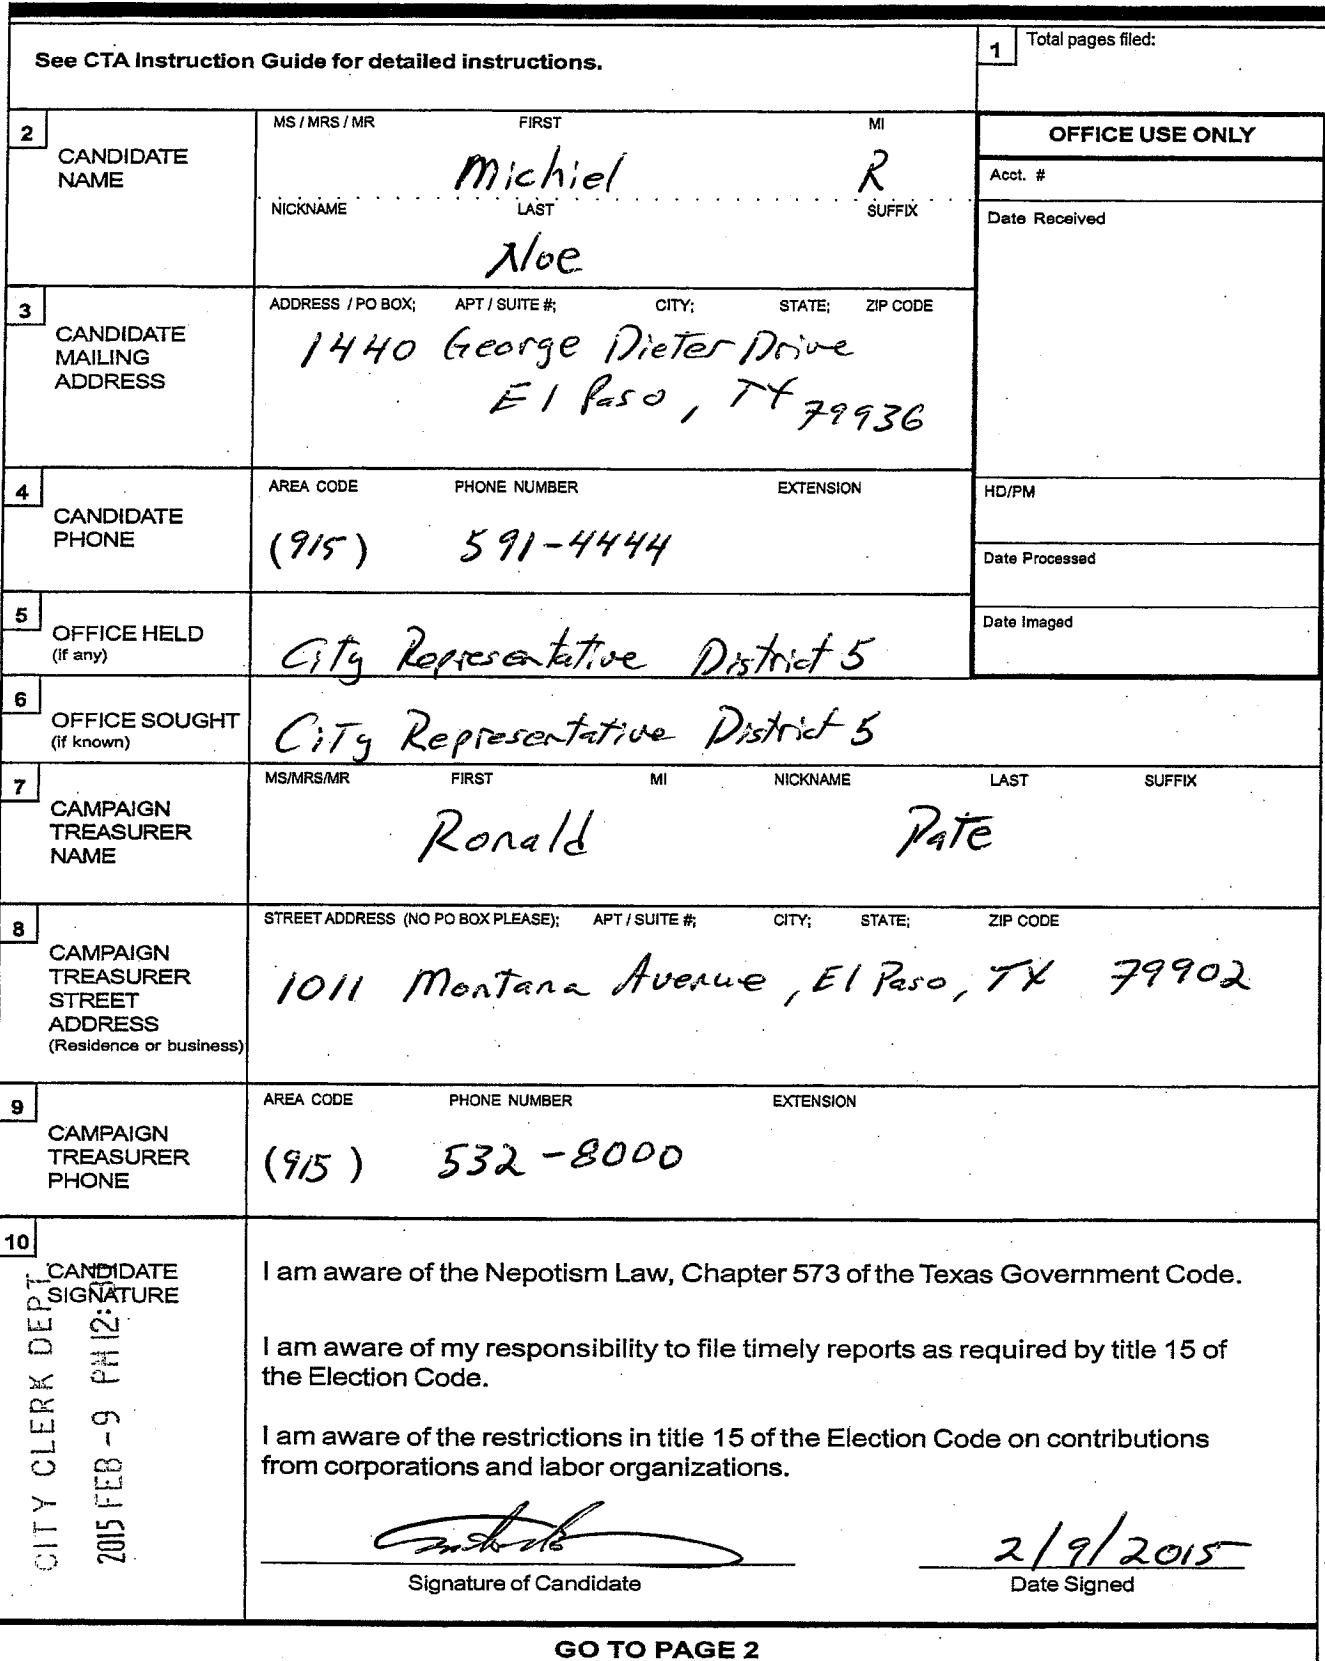 See CTA Instruction Guide for detailed instructions.
1 Total pages filed:
2 CANDIDATE NAME
MS / MRS / MR FIRST MI
Michiel R
NICKNAME LAST SUFFIX
Noe
OFFICE USE ONLY
Acct. #
Date Received
3 CANDIDATE MAILING ADDRESS
ADDRESS / PO BOX; APT / SUITE #; CITY; STATE; ZIP CODE
1440 George Dieter Drive
El Paso, TX 79936
4 CANDIDATE PHONE
AREA CODE PHONE NUMBER EXTENSION
(915) 591-4444
HD/PM
Date Processed
Date Imaged
5 OFFICE HELD
(if any)
City Representative District 5
6 OFFICE SOUGHT
(if known)
City Representative District 5
7 CAMPAIGN TREASURER NAME
MS/MRS/MR FIRST MI NICKNAME LAST SUFFIX
Ronald Pate
8 CAMPAIGN TREASURER STREET ADDRESS
(Residence or business)
STREET ADDRESS (NO PO BOX PLEASE); APT / SUITE #; CITY; STATE; ZIP CODE
1011 Montana Avenue, El Paso, TX 79902
9 CAMPAIGN TREASURER PHONE
AREA CODE PHONE NUMBER EXTENSION
(915) 532-8000
10 CANDIDATE SIGNATURE
I am aware of the Nepotism Law, Chapter 573 of the Texas Government Code.
I am aware of my responsibility to file timely reports as required by title 15 of
the Election Code.
I am aware of the restrictions in title 15 of the Election Code on contributions
from corporations and labor organizations.
2/9/2015
Signature of Candidate Date Signed
CITY CLERK DEPT
2015 FEB -9 PM 12:
GO TO PAGE 2